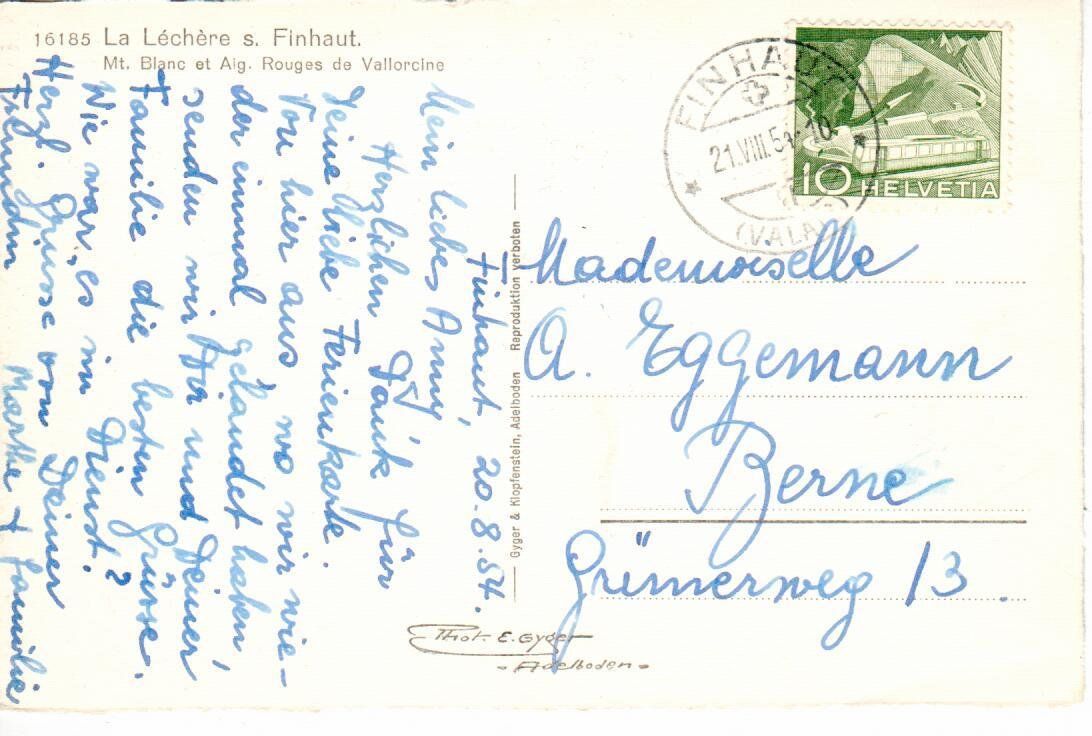 16185 La Léchère s. Finhaut.
Mt. Blanc et Aig. Rouges de Vallorcine
Finhaut, 20.8.54.
Mein liebes Anny,
Herzlichen Dank für
Deine liebe Ferienkarte.
Von hier aus wo wir wie-
der einmal gelandet haben,
senden wir Dir und Deiner
Familie die besten Grüsse.
Wie war es im Dienst?
Herzl. Grüsse von Deiner
Freundin Marthe + Familie
Gyger & Klopfenstein, Adelboden Reproduktion verboten
FINHAUT
21.VIII.54-10
(VALAIS)
10 HELVETIA
Mademoiselle
A. Eggemann
Berne
Grünerweg 13.
Phot. E. Gyger
- Adelboden -